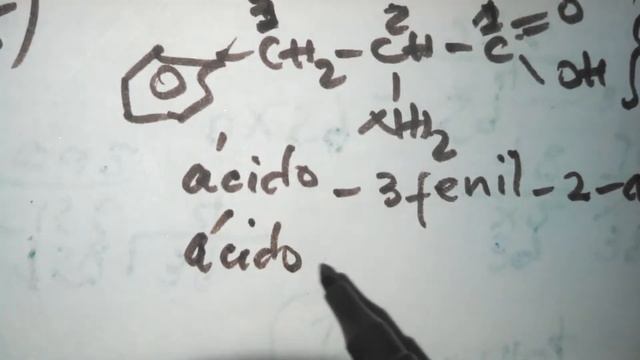 3 2 1
CH2-CH-C=O
OH
NH2
ácido-3fenil-2-a
ácido